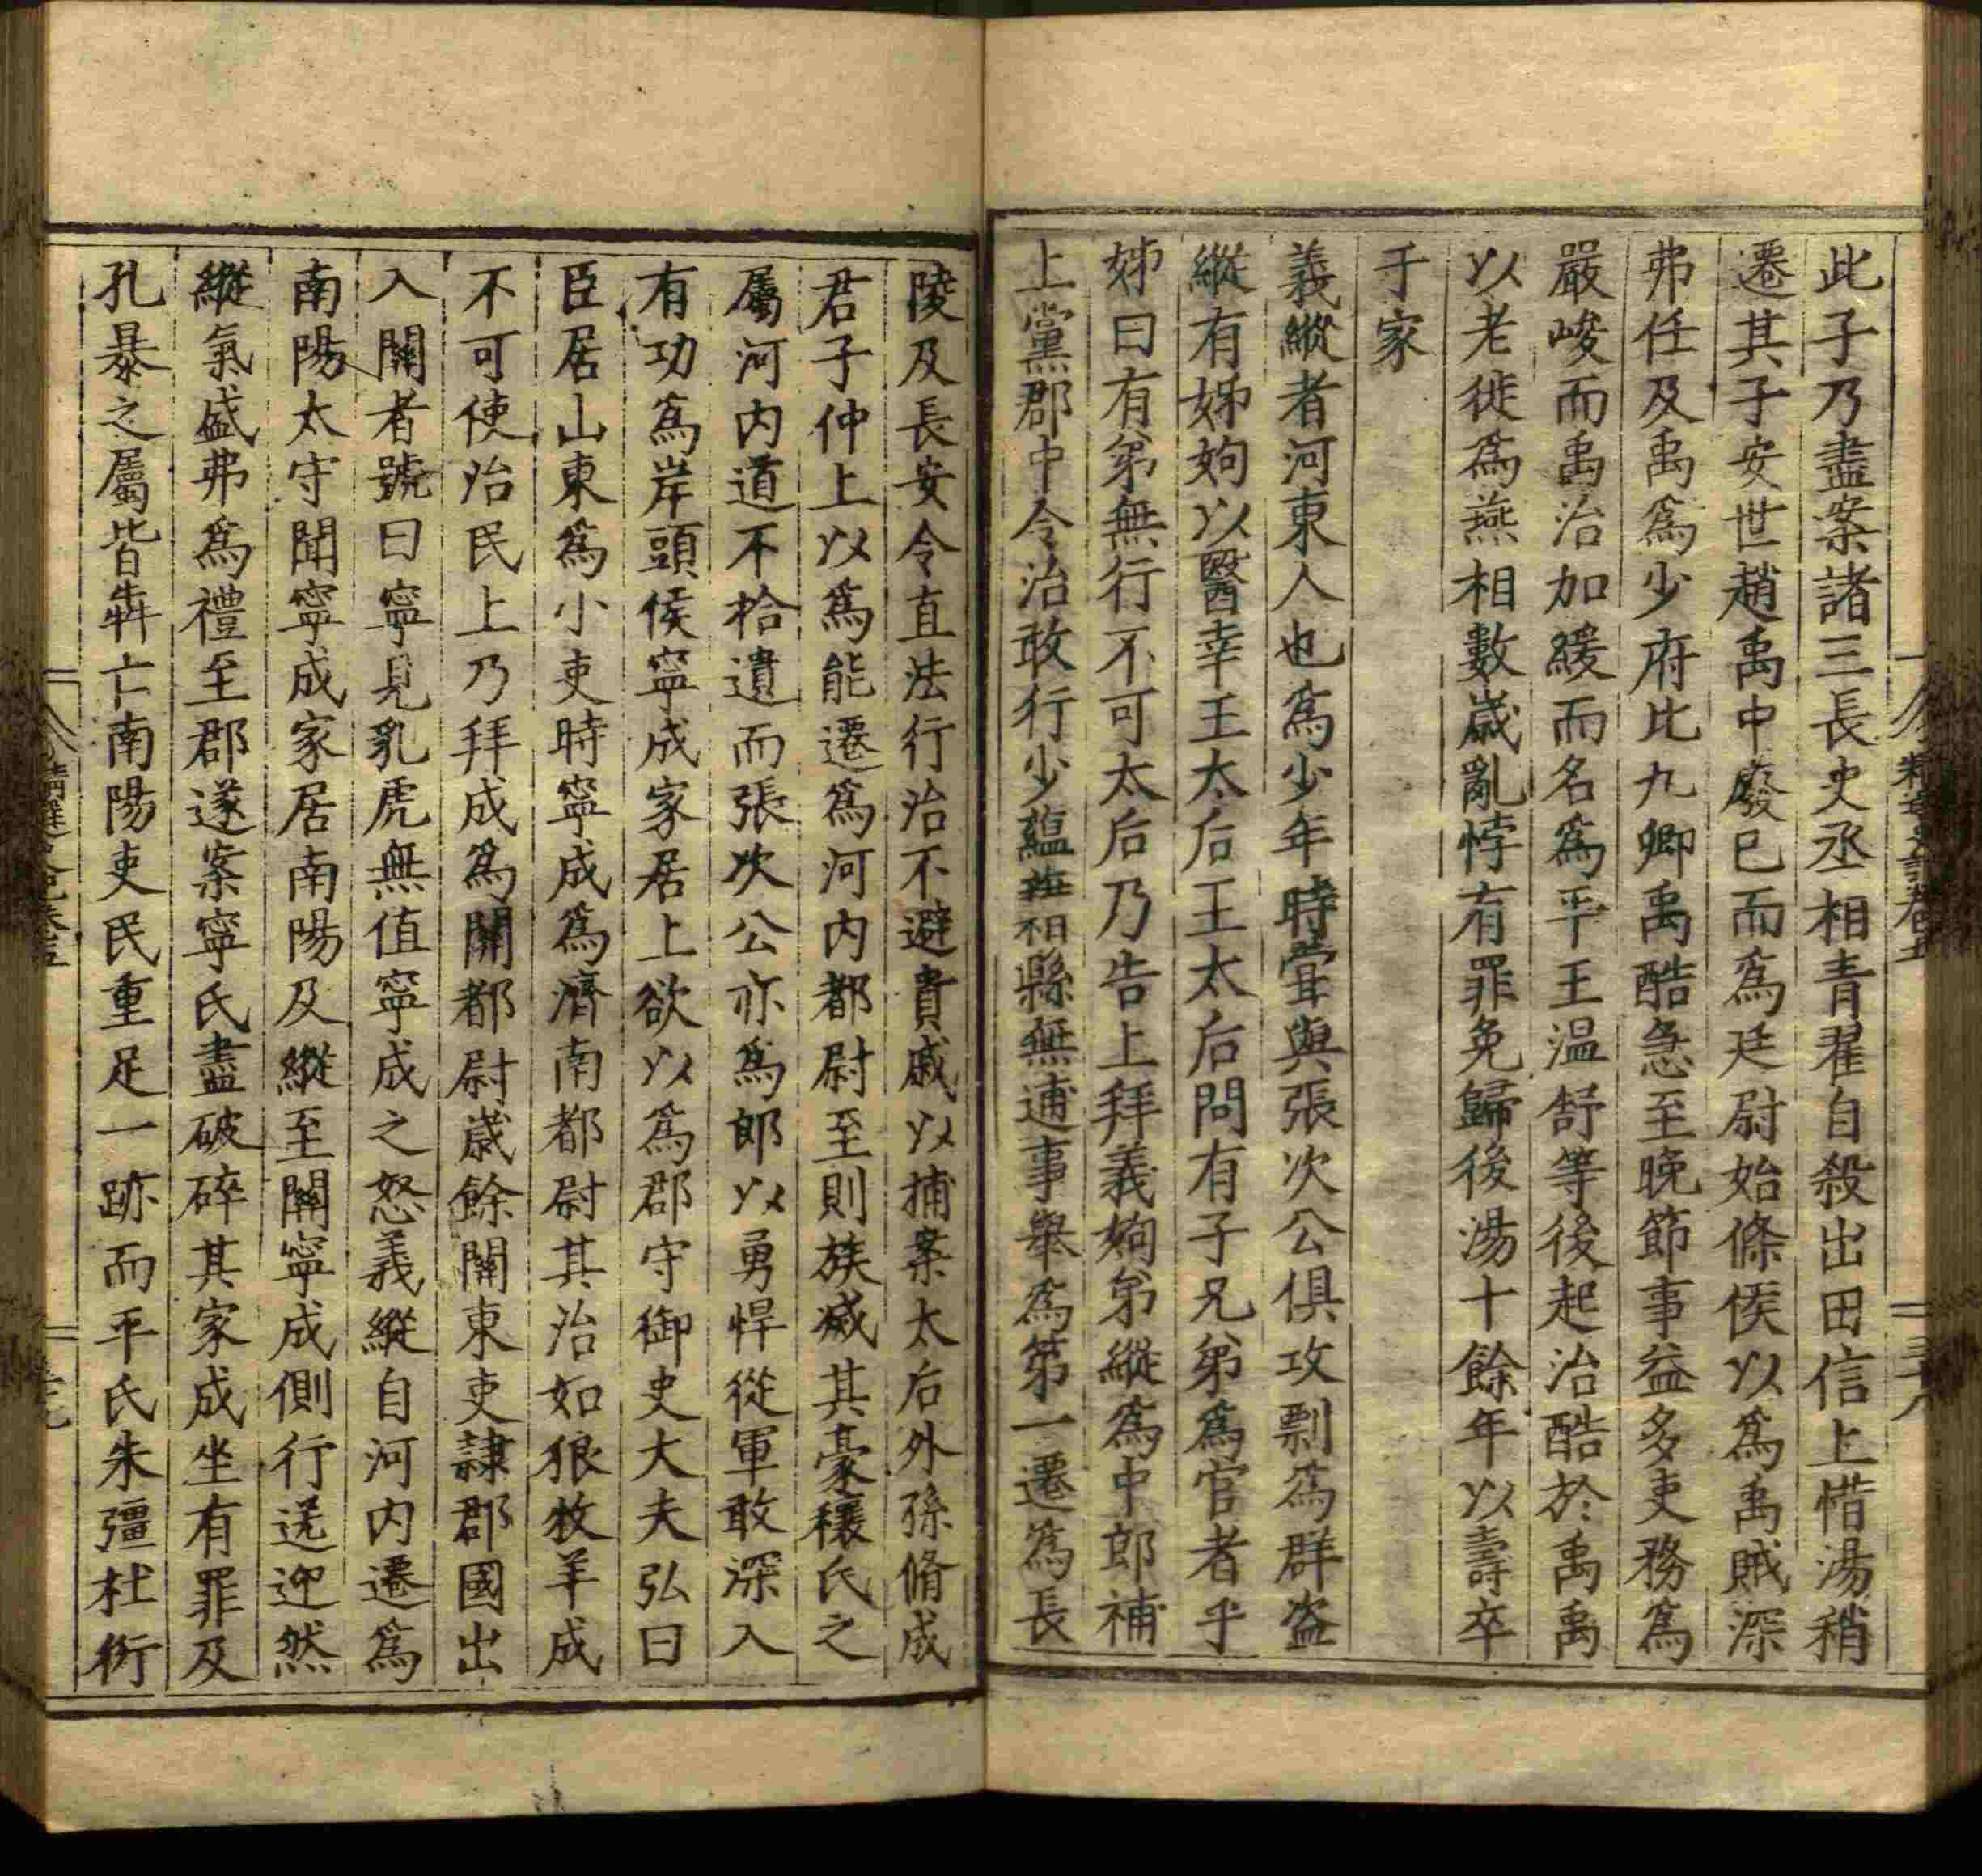 此子乃盡案諸三長史丞相青翟自殺出田信上惜湯稍
遷其子安世趙禹中廢已而爲廷尉始條侯以爲禹賊深
弗任及禹爲少府比九卿禹酷急至晚節事益多吏務爲
嚴峻而禹治加緩而名爲平王温舒等後起治酷於禹禹
以老徙爲燕相數歲亂悖有罪免歸後湯十餘年以壽卒
于家
義縱者河東人也爲少年時嘗與張次公俱攻剽爲群盗
縱有姊姁以醫幸王太后王太后問有子兄弟爲官者乎
姊曰有弟無行不可太后乃告上拜義姁弟縱爲中郎補
上黨郡中令治敢行少藴藉縣無逋事舉爲第一遷爲長
陵及長安令直法行治不避貴戚以捕案太后外孫脩成
君子仲上以爲能遷爲河内都尉至則族滅其豪穰氏之
屬河内道不拾遺而張次公亦爲郎以勇悍從軍敢深入
有功爲岸頭侯寧成家居上欲以爲郡守御史大夫弘曰
臣居山東爲小吏時寧成爲濟南都尉其治如狼牧羊成
不可使治民上乃拜成爲關都尉歲餘關東吏隸郡國出
入關者號曰寧見乳虎無值寧成之怒義縱自河内遷爲
南陽太守聞寧成家居南陽及縱至關寧成側行送迎然
縱氣盛弗爲禮至郡遂案寧氏盡破碎其家成坐有罪及
孔暴之屬皆犇亡南陽吏民重足一跡而平氏朱彊杜衍